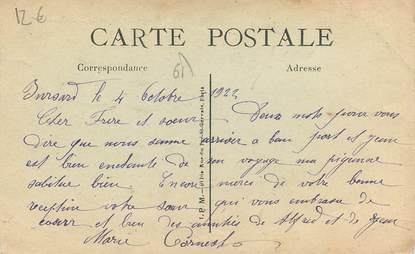 12€
CARTE POSTALE
Correspondance
61
Adresse
le 4 Octobre 1922
Cher Frere et soeur Deux mots pour vous
dire que nous somme arriver a bon port et Jean
est bien enchanté de son voyage ma pigeonne
sabitue bien. Encore merci de votre bonne
reception votre soeur qui vous embrasse de
coeur et bien des amitiés de Alfred et de Jean
Marie